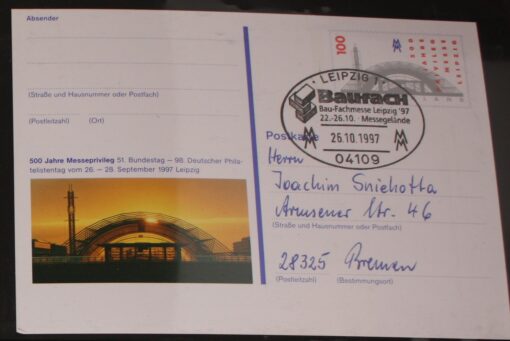 Absender
(Straße und Hausnummer oder Postfach)
(Postleitzahl) (Ort)
500 Jahre Messeprivileg 51. Bundestag – 98. Deutscher Phila-
telistentag vom 26. – 28. September 1997 Leipzig
100
500 JAHRE PRIVILEG MESSE LEIPZIG
LEIPZIG 1
Baufach
Bau-Fachmesse Leipzig '97
22.-26.10. · Messegelände
26.10.1997
04109
Postkarte
Herrn
Joachim Sniehotta
Armsener Str. 46
(Straße und Hausnummer oder Postfach)
28325 Bremen
(Postleitzahl) (Bestimmungsort)